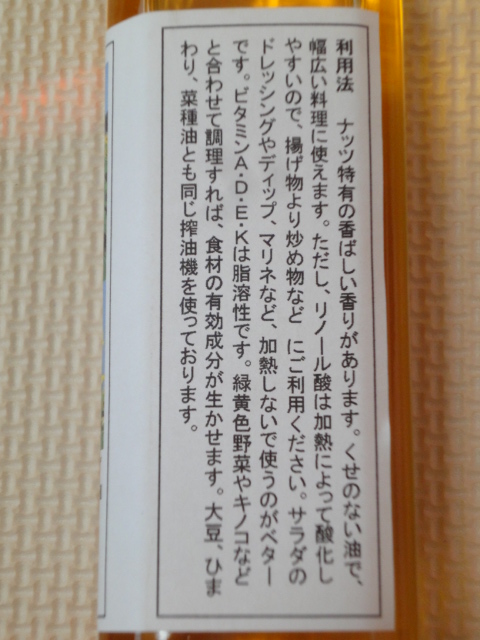 利用法　ナッツ特有の香ばしい香りがあります。くせのない油で、
幅広い料理に使えます。ただし、リノール酸は加熱によって酸化し
やすいので、揚げ物より炒め物など にご利用ください。サラダの
ドレッシングやディップ、マリネなど、加熱しないで使うのがベター
です。ビタミンA・D・E・Kは脂溶性です。緑黄色野菜やキノコなど
と合わせて調理すれば、食材の有効成分が生かせます。大豆、ひま
わり、菜種油とも同じ搾油機を使っております。